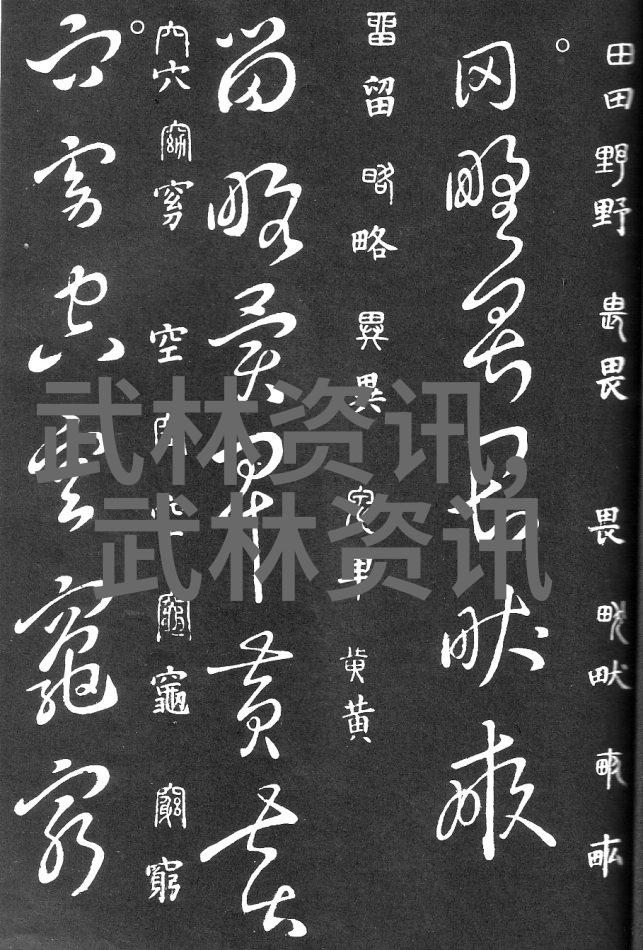 田田野野畏畏畏畎
田野畏畏畎畝
畱留略略異異卑黄黄
留略異卑黄黄
穴空空竈竈窮窮
穴空空竈窮
武林资讯,
武林资讯